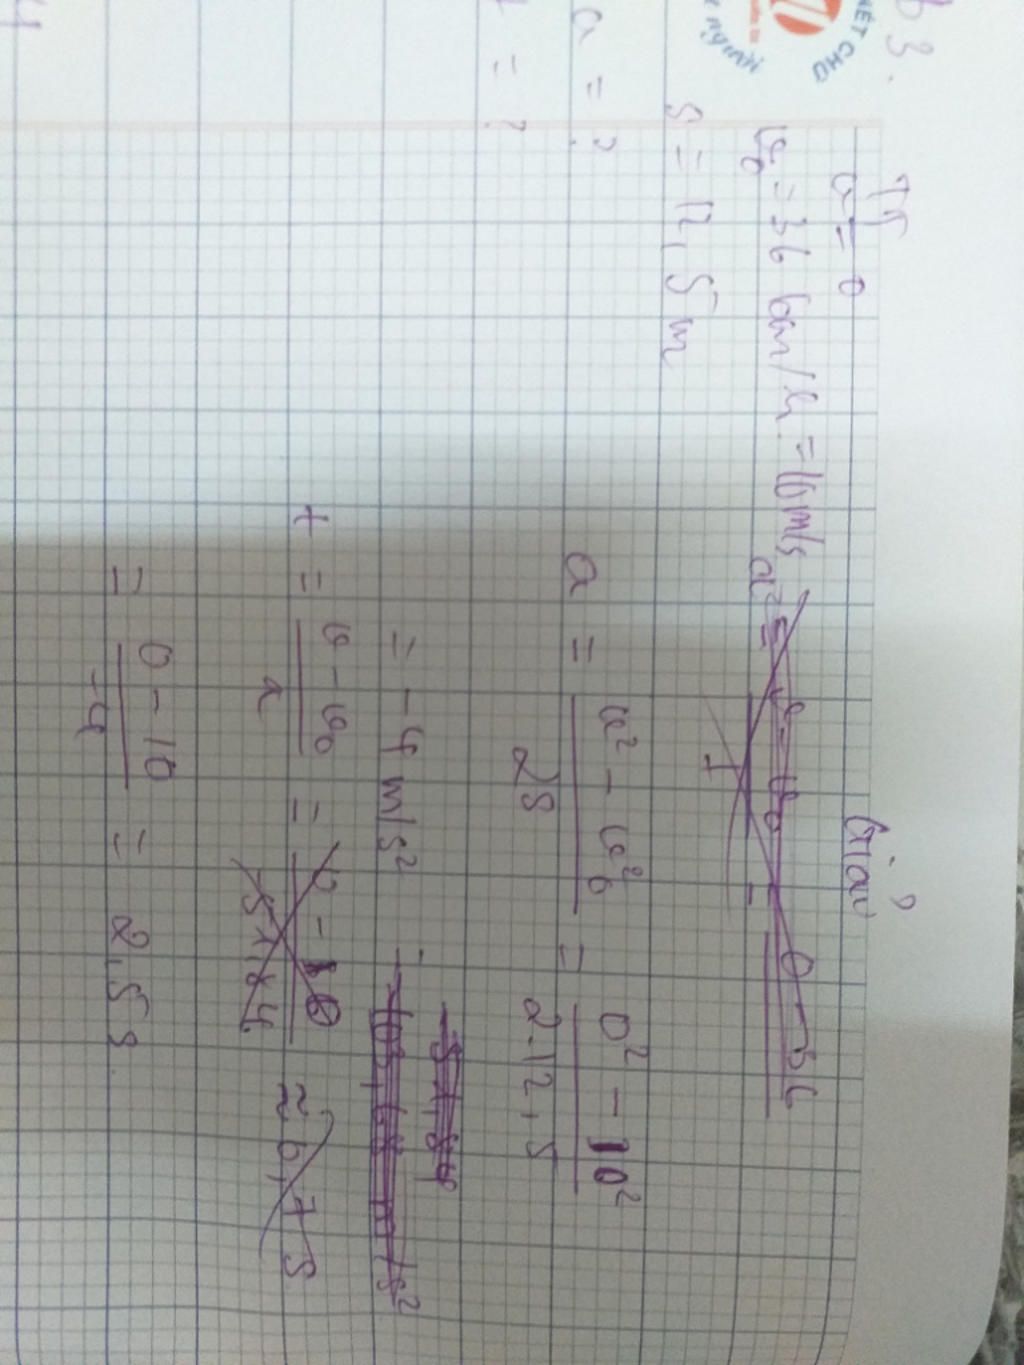 b 3.
TT
v = 0
v₀ = 36 km/h = 10 m/s
s = 12,5 m
a = ?
t = ?
Giải
a = (v² - v₀²)/2s = (0² - 10²)/2.12,5
= -4 m/s²
t = (v - v₀)/a = (0 - 10)/-5,184 ≈ 6,75
= (0 - 10)/-4 = 2,5 s